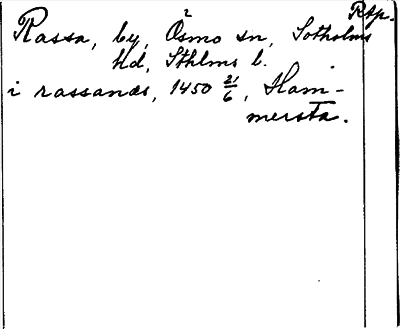 Rtp.
Rassa, by, Ösmo sn, Sotholms
hd, Sthlms l.
i rassanæs, 1450 21/6, Ham-
mersta.